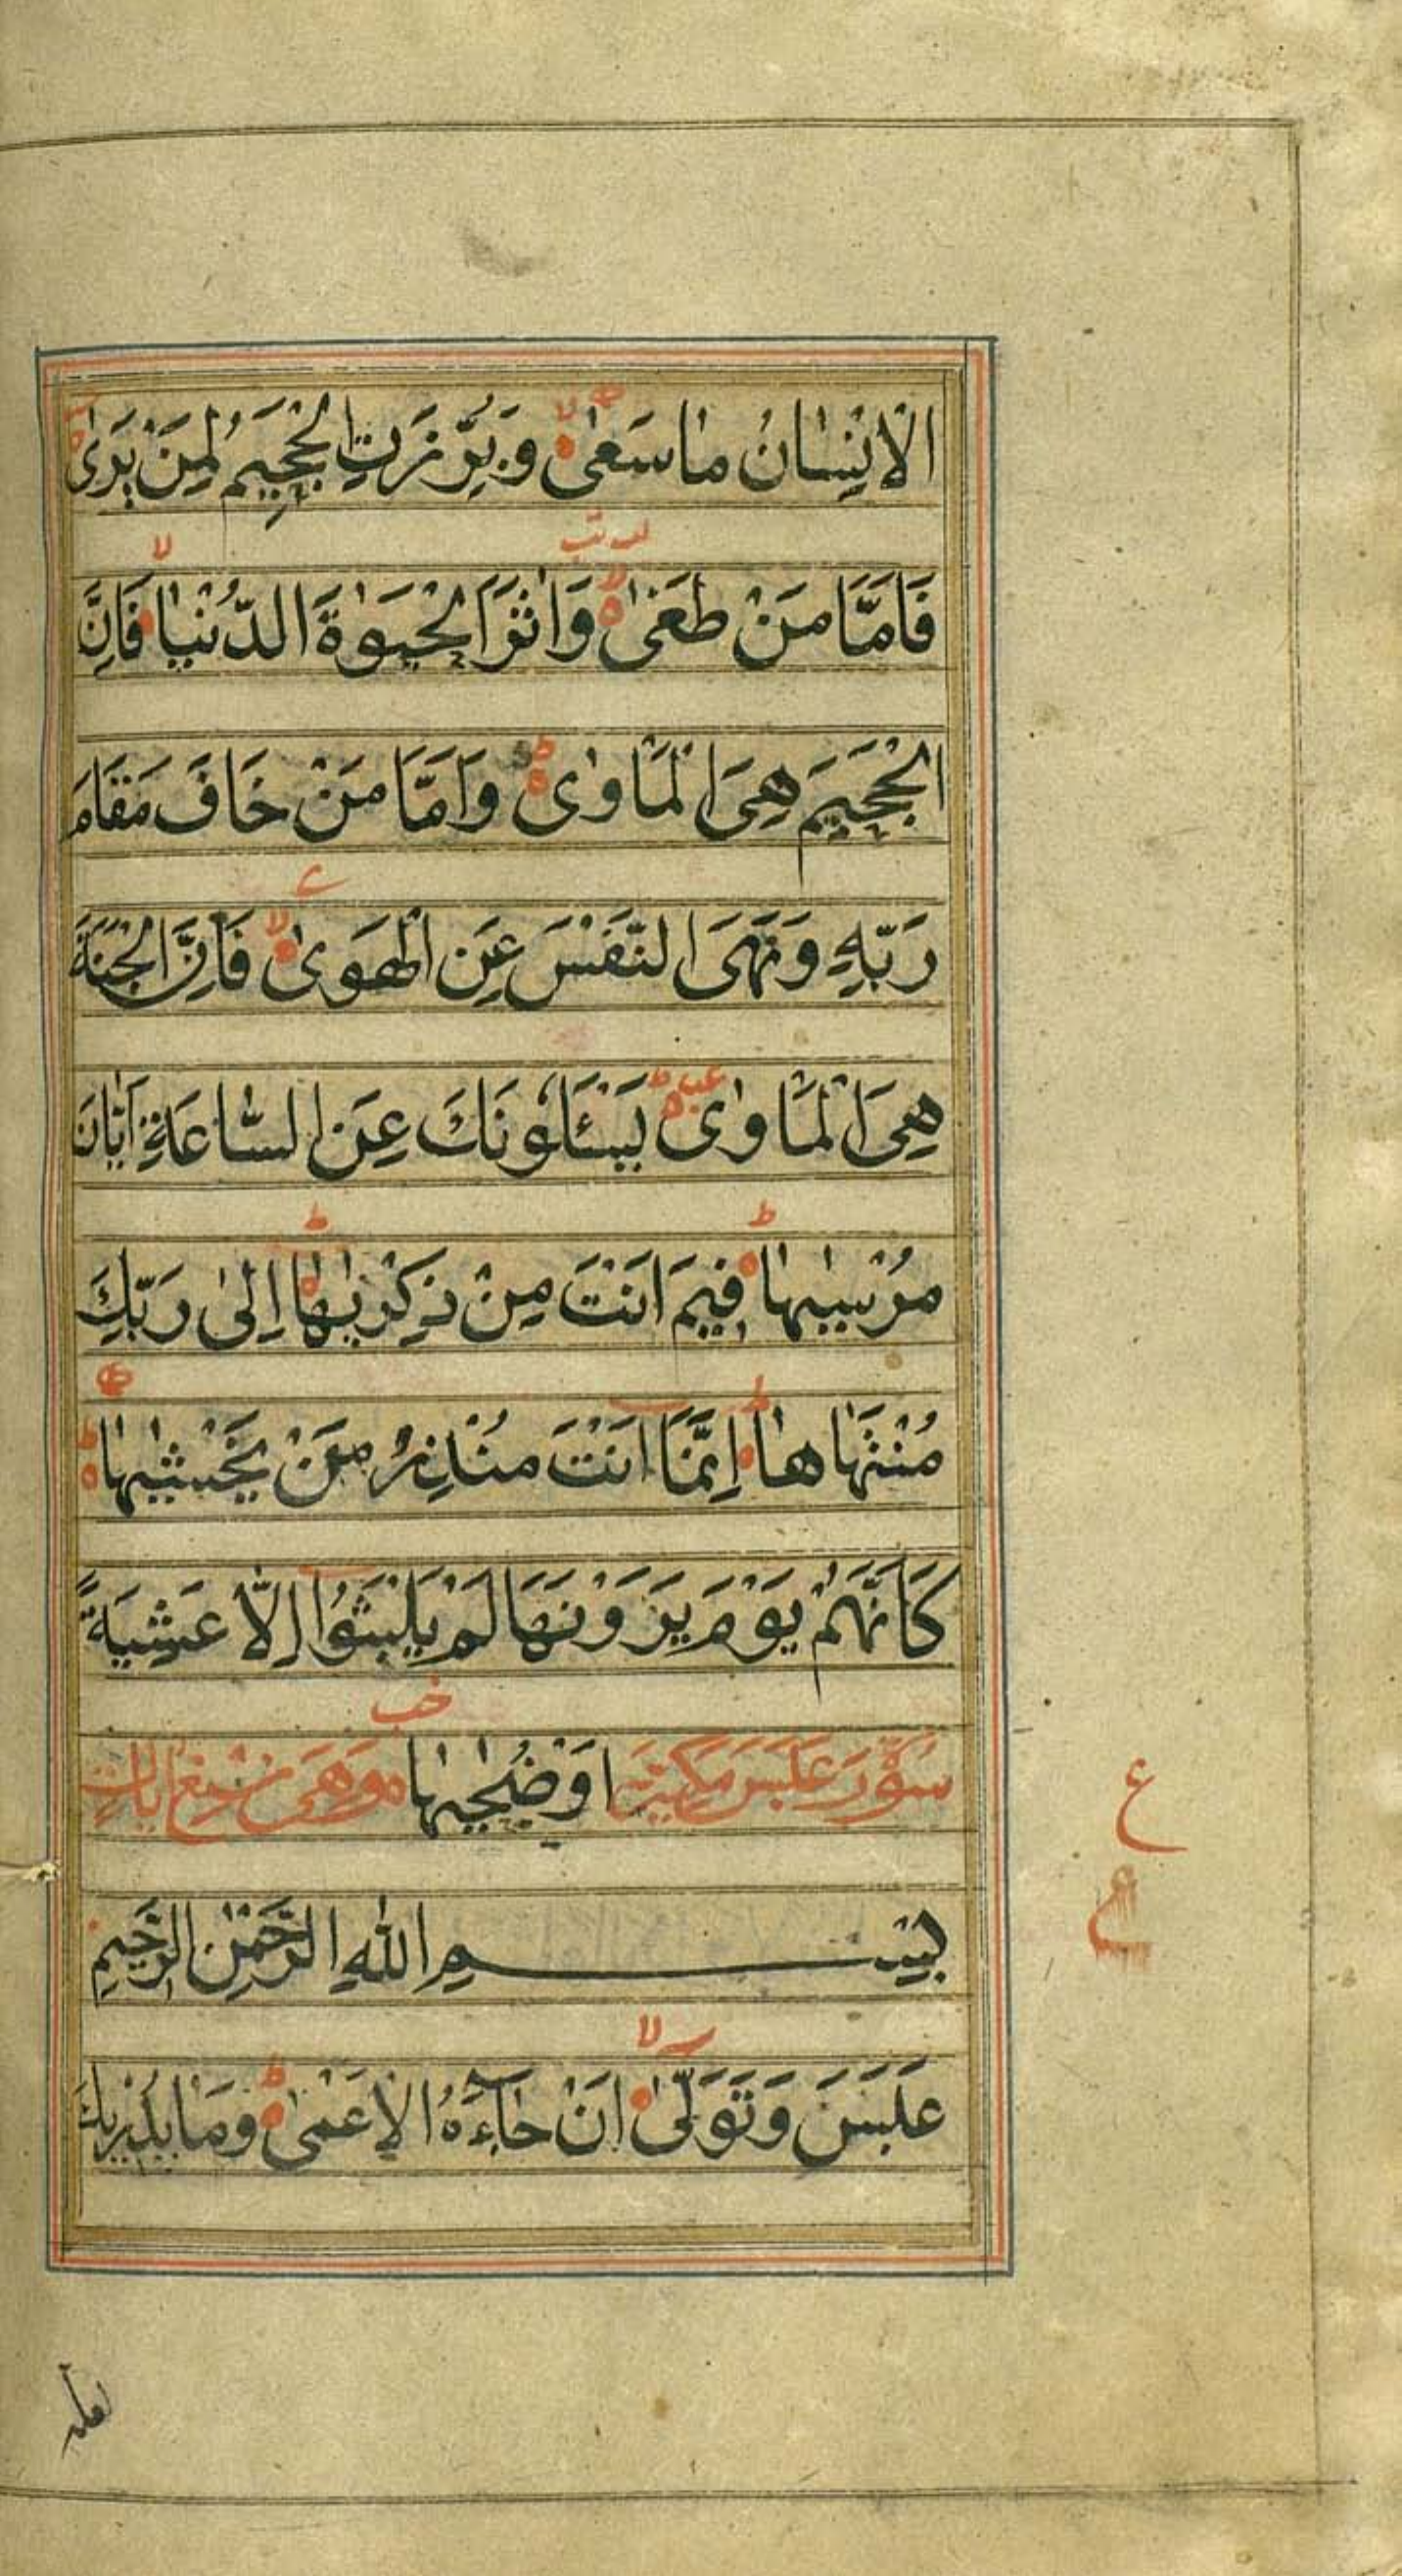 الْاِنْسَانُ مَا سَعٰىۙ وَبُرِّزَتِ الْجَحِيْمُ لِمَنْ يَرٰى
فَاَمَّا مَنْ طَغٰىۙ وَاٰثَرَ الْحَيٰوةَ الدُّنْيَاۙ فَاِنَّ
الْجَحِيْمَ هِيَ الْمَاْوٰىؕ وَاَمَّا مَنْ خَافَ مَقَامَ
رَبِّهٖ وَنَهَى النَّفْسَ عَنِ الْهَوٰىۙ فَاِنَّ الْجَنَّةَ
هِيَ الْمَاْوٰىؕ يَسْـَٔلُوْنَكَ عَنِ السَّاعَةِ اَيَّانَ
مُرْسٰىهَاؕ فِيْمَ اَنْتَ مِنْ ذِكْرٰىهَاؕ اِلٰى رَبِّكَ
مُنْتَهَاهَاؕ اِنَّمَا اَنْتَ مُنْذِرُ مَنْ يَخْشٰىهَاؕ
كَاَنَّهُمْ يَوْمَ يَرَوْنَهَا لَمْ يَلْبَثُوْا اِلَّا عَشِيَّةً
سورة عبس مكية اَوْ ضُحٰىهَا وهي آيات
بِسْمِ اللّٰهِ الرَّحْمٰنِ الرَّحِيْمِ
عَبَسَ وَتَوَلّٰىۙ اَنْ جَآءَهُ الْاَعْمٰىؕ وَمَا يُدْرِيْكَ
ع
لعله